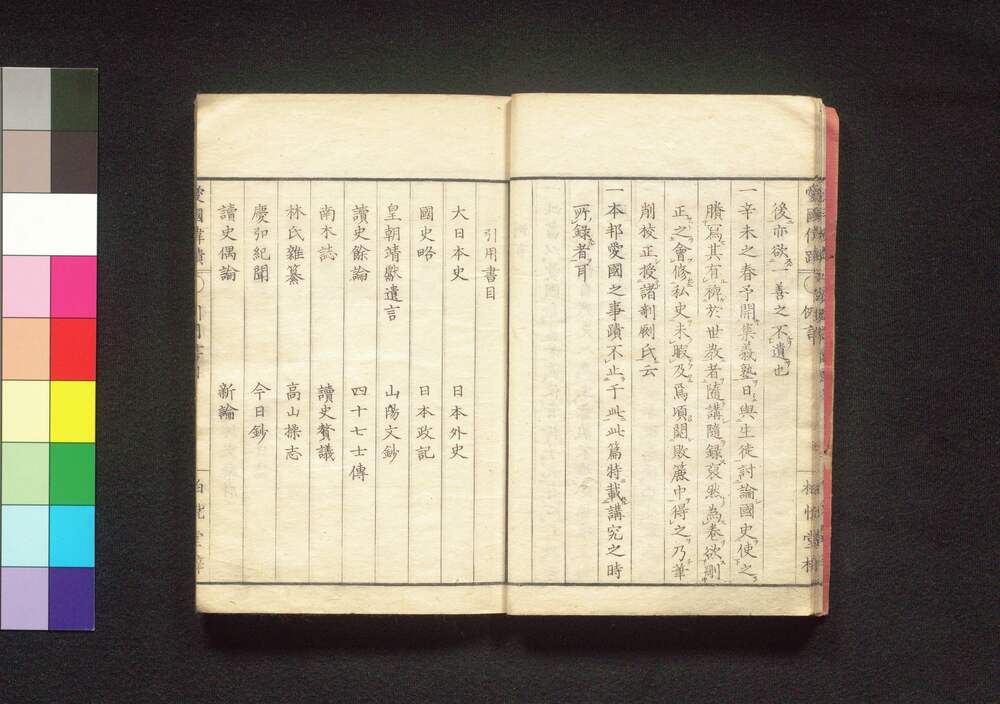 後亦欲一善之不遺也
一辛未之春予開集義塾日與生徒討論國史使之
賸寫其有裨於世敎者隨講隨錄裒然為卷欲刪
正之會修私史未暇及焉頃閱敗簏中得之乃筆
削校正授諸剞劂氏云
一本邦愛國之事蹟不止于此此篇特載講究之時
所錄者耳
引用書目
大日本史
日本外史
國史略
日本政記
皇朝靖獻遺言
山陽文鈔
讀史餘論
四十七士傳
南木誌
讀史贅議
林氏雜纂
高山操志
慶弘紀聞
今日鈔
讀史偶論
新論